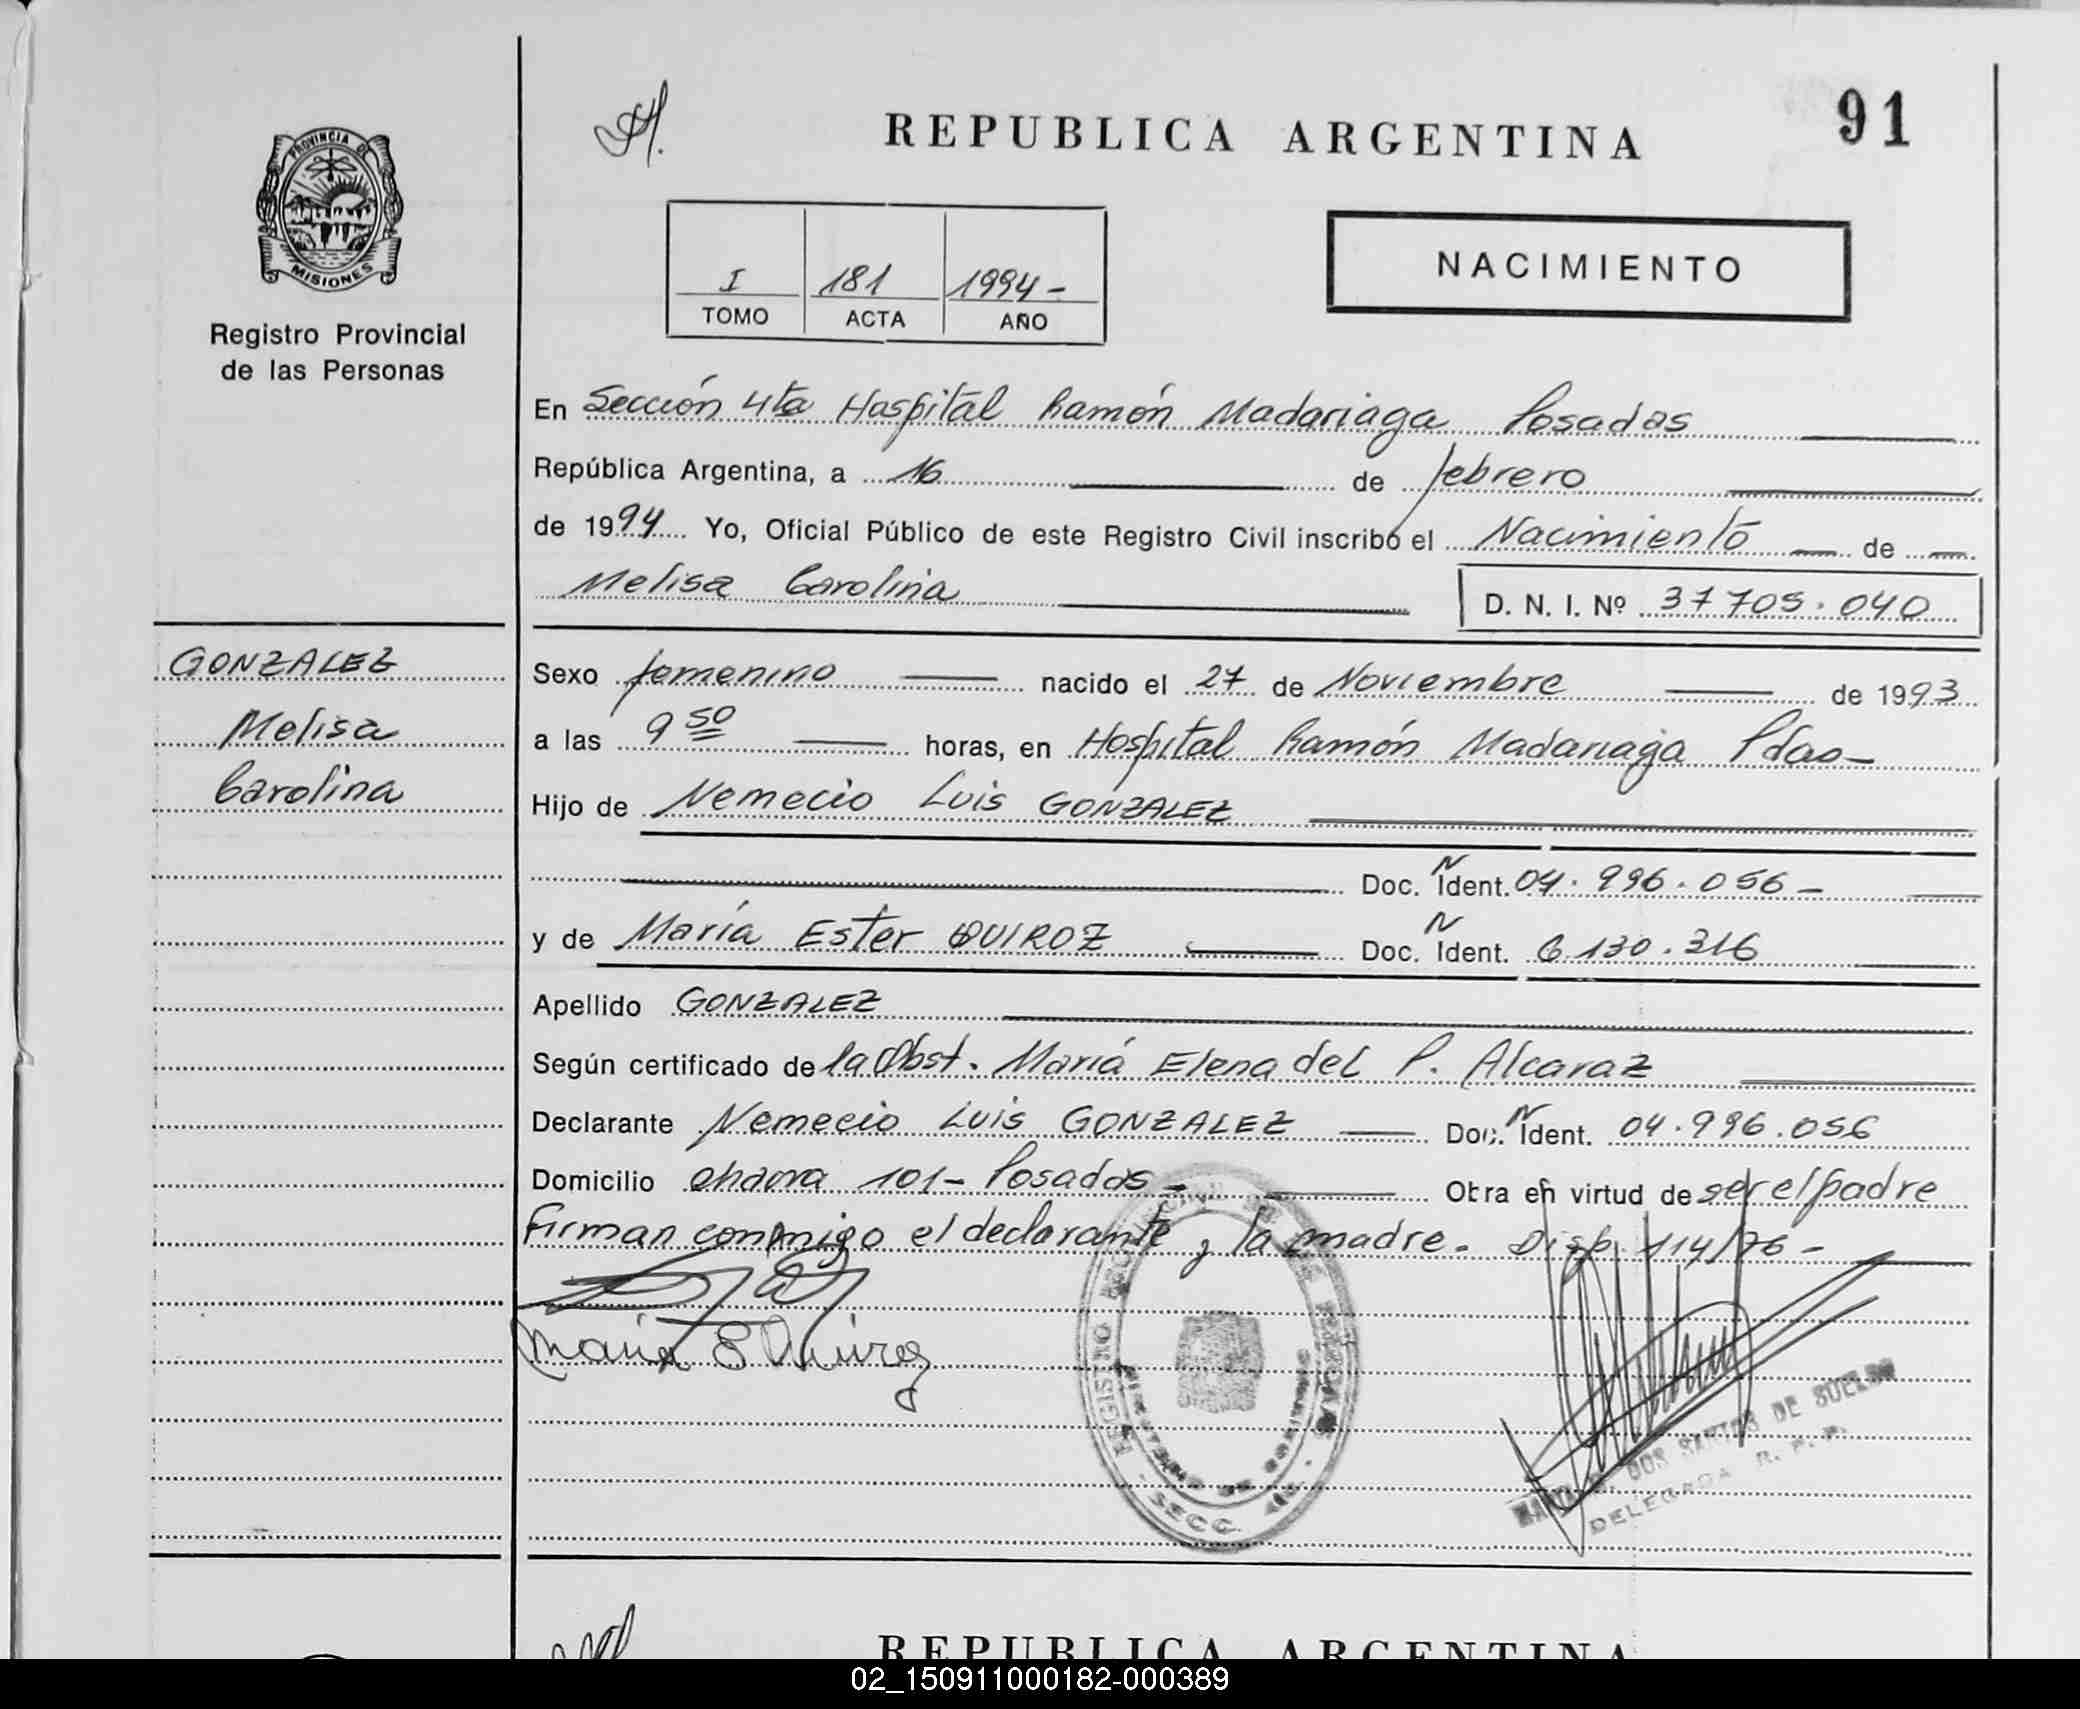 91
REPUBLICA ARGENTINA
PROVINCIA DE
MISIONES
Registro Provincial
de las Personas
I 181 1994-
TOMO ACTA AÑO
NACIMIENTO
En Sección 4ta Hospital Ramón Madariaga Posadas
República Argentina, a 16 de febrero
de 1994 Yo, Oficial Público de este Registro Civil inscribo el Nacimiento de
Melisa Carolina D. N. I. Nº 37705.040
GONZALEZ
Melisa
Carolina
Sexo femenino nacido el 27 de Noviembre de 1993
a las 9 50 horas, en Hospital Ramón Madariaga Pdas-
Hijo de Nemecio Luis GONZALEZ
Doc. N Ident. 04.996.056-
y de María Ester QUIROZ Doc. N Ident. 6.130.316
Apellido GONZALEZ
Según certificado de la Obst. María Elena del P. Alcaraz
Declarante Nemecio Luis GONZALEZ Doc. N Ident. 04.996.056
Domicilio chacra 101- Posadas- Obra en virtud de ser el padre
Firman conmigo el declarante y la madre. Disp. 114/76-
Maria E Quiroz
REGISTRO PROVINCIAL DE LAS PERSONAS
MINISTERIO DE GOBIERNO
SECC. 4ta.
DOS SANTOS DE SUELDO
DELEGADA R. P. P.
REPUBLICA ARGENTINA
02_150911000182-000389